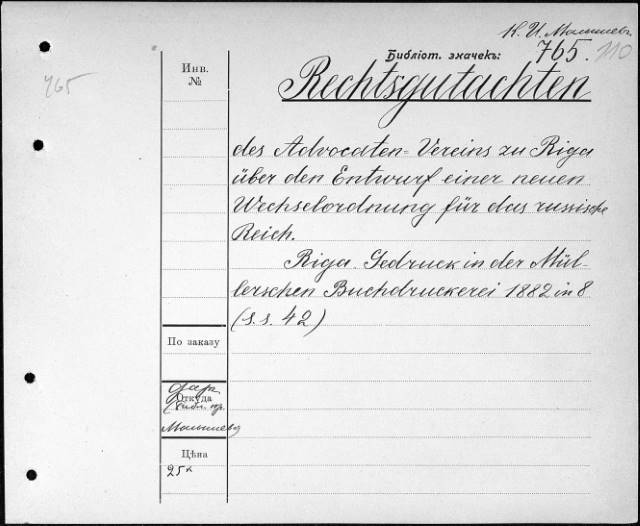 К. И. Малышевъ
765
Библіот. значекъ: 765. 110
Инв. №
Rechtsgutachten
des Advocaten-Vereins zu Riga
über den Entwurf einer neuen
Wechselordnung für das russische
Reich.
Riga. Gedruck in der Mül-
lerschen Buchdruckerei 1882 in 8
(s.s. 42)
По заказу
Откуда
даръ
Малышева
Цѣна
25 к